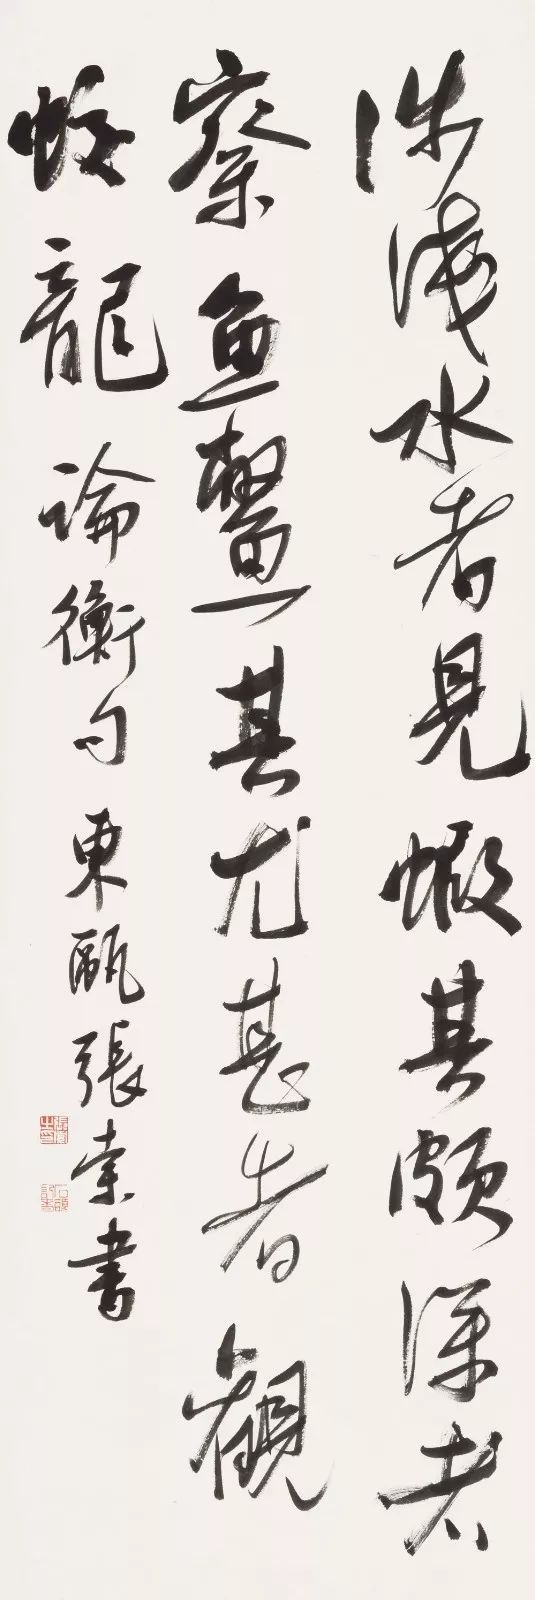 涉浅水者見蝦其颇深者
察魚鱉其尤甚者觀
蛟龍論衡句東甌張索書